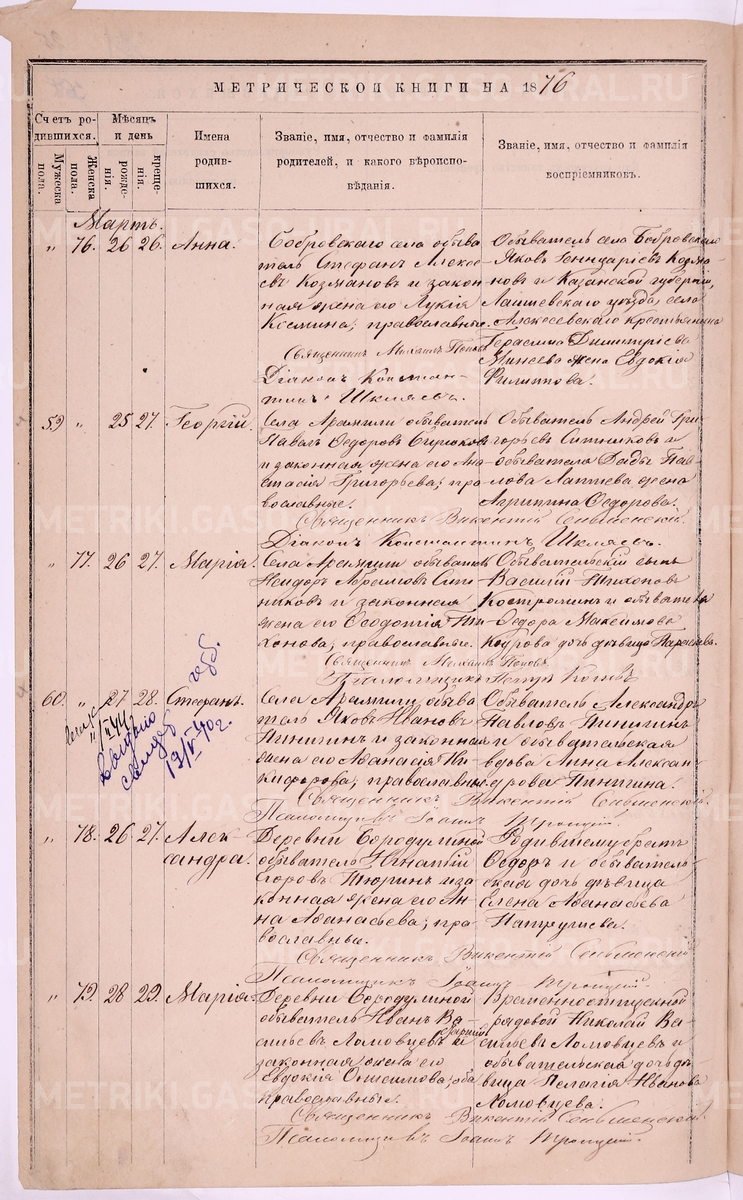 МЕТРИЧЕСКОЙ КНИГИ НА 1876
Счетъ родившихся.
Мужеска пола.
Женска пола.
Мѣсяцъ и день
рожденія.
крещенія.
Имена родившихся.
Званіе, имя, отчество и фамилія родителей, и какого вѣроисповѣданія.
Званіе, имя, отчество и фамилія воспріемниковъ.
Мартъ.
" 76. 26 26. Анна.
Бобровскаго села обыва
тель Стефанъ Алексе
евъ Козмановъ и закон
ная жена его Лукія
Козмина; православные.
Священникъ Михаилъ Поповъ
Діаконъ Констан
тинъ Шкляевъ.
Обыватель села Бобровскаго
Яковъ
и Казанской губерніи,
Лаишевскаго уѣзда, села
Алексеевскаго крестьянина
Герасима Димитріева
Минеева жена Евдокія
Филиппова.
59 " 25 27. Георгій.
Села Арамили обыватель
Павелъ Ѳедоровъ
и законная жена его Ана
стасія Григорьева; пра
вославные.
Священникъ Викентій
Діаконъ Константинъ Шкляевъ.
Обыватель Андрей Гри
горьевъ Ситниковъ и
обывателя Давида Пав
лова Лаптева жена
Агрипина Ѳедорова.
" 77. 26 27. Марія.
Села Арамили обыватель
Исидоръ Абрамовъ Сит
никовъ и законная
жена его Ѳеодотія Ти
хонова; православные.
Священникъ Михаилъ Поповъ.
Псаломщикъ Петръ
Обывательскій сынъ
Василій Тихоновъ
Костроминъ и обывателя
Ѳедора Максимова
дочь дѣвица
60. " 27 28. Стефанъ.
Села Арамили обыва
тель Яковъ Ивановъ
Пинигинъ и законная
жена его Аѳанасія Ни
кифорова; православные.
Священникъ Викентій
Псаломщикъ Іоаннъ Троицкій.
Обыватель Александръ
Павловъ Пинигинъ
и обывательская
вдова Анна Алексан
дрова Пинигина.
13/V 40 г.
" 78. 26 27. Алек
сандра.
Деревни Бородулиной
обыватель Игнатій
Егоровъ Тюринъ и за
конная жена его Ан
на Аѳанасьева; пра
вославные.
Священникъ Викентій
Псаломщикъ Іоаннъ Троицкій.
Родившему братъ
Ѳедоръ и обыватель
ская дочь дѣвица
Елена Аѳанасьева
Патрушева.
" 79. 28 29. Марія.
Деревни Бородулиной
обыватель Иванъ Ва
сильевъ Ломовцевъ и
законная жена его
Евдокія Онисимова; оба
православные.
Священникъ Викентій
Псаломщикъ Іоаннъ Троицкій.
Временноотпускной
рядовой Николай Ва
сильевъ Ломовцевъ и
обывательская дочь дѣ
вица Пелагія Иванова
Ломовцева.
METRIKI.GASO-URAL.RU